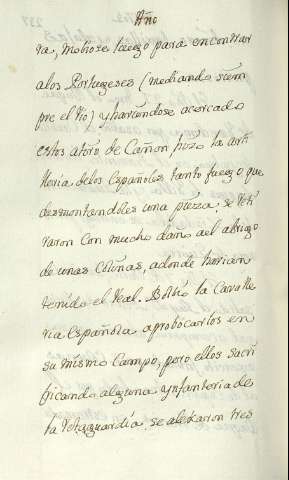 Año
ra, moviose luego para encontrar
alos Portugeses (mediando siem
pre el Rio) y haviendose acercado
estos atiro de Cañon hizo la arti
lleria delos Españoles tanto fuego que
desmontandoles una piezza se reti
raron con mucho daño al abrigo
de unas colinas, adonde havian
tenido el Real. Bolbio la Cavalle
ria Española aprobocarlos en
su mismo Campo, pero ellos sacri
ficando alguna ynfanteria de
la retaguardia se alexaron tres